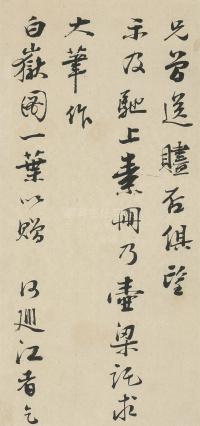 兄曾送贐否俱望
示及馳上素冊乃壺梁託求
大筆作
白嶽圖一葉以贈 汪廻江者乞